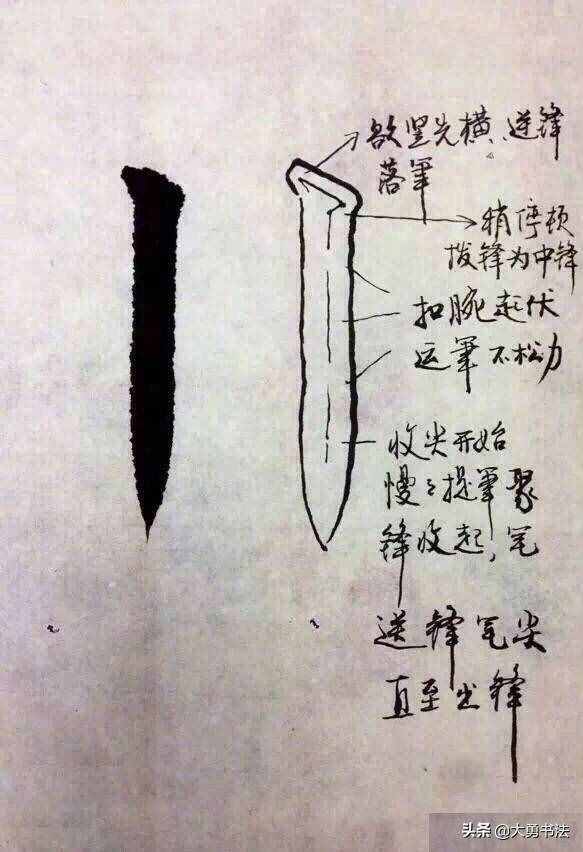 欲竖先横、逆锋
落筆
稍停顿
拨锋为中锋
扣腕起伏
运筆不松力
收尖开始
慢〻提筆聚
锋收起,笔
送锋笔尖
直至出锋
头条 @大勇书法